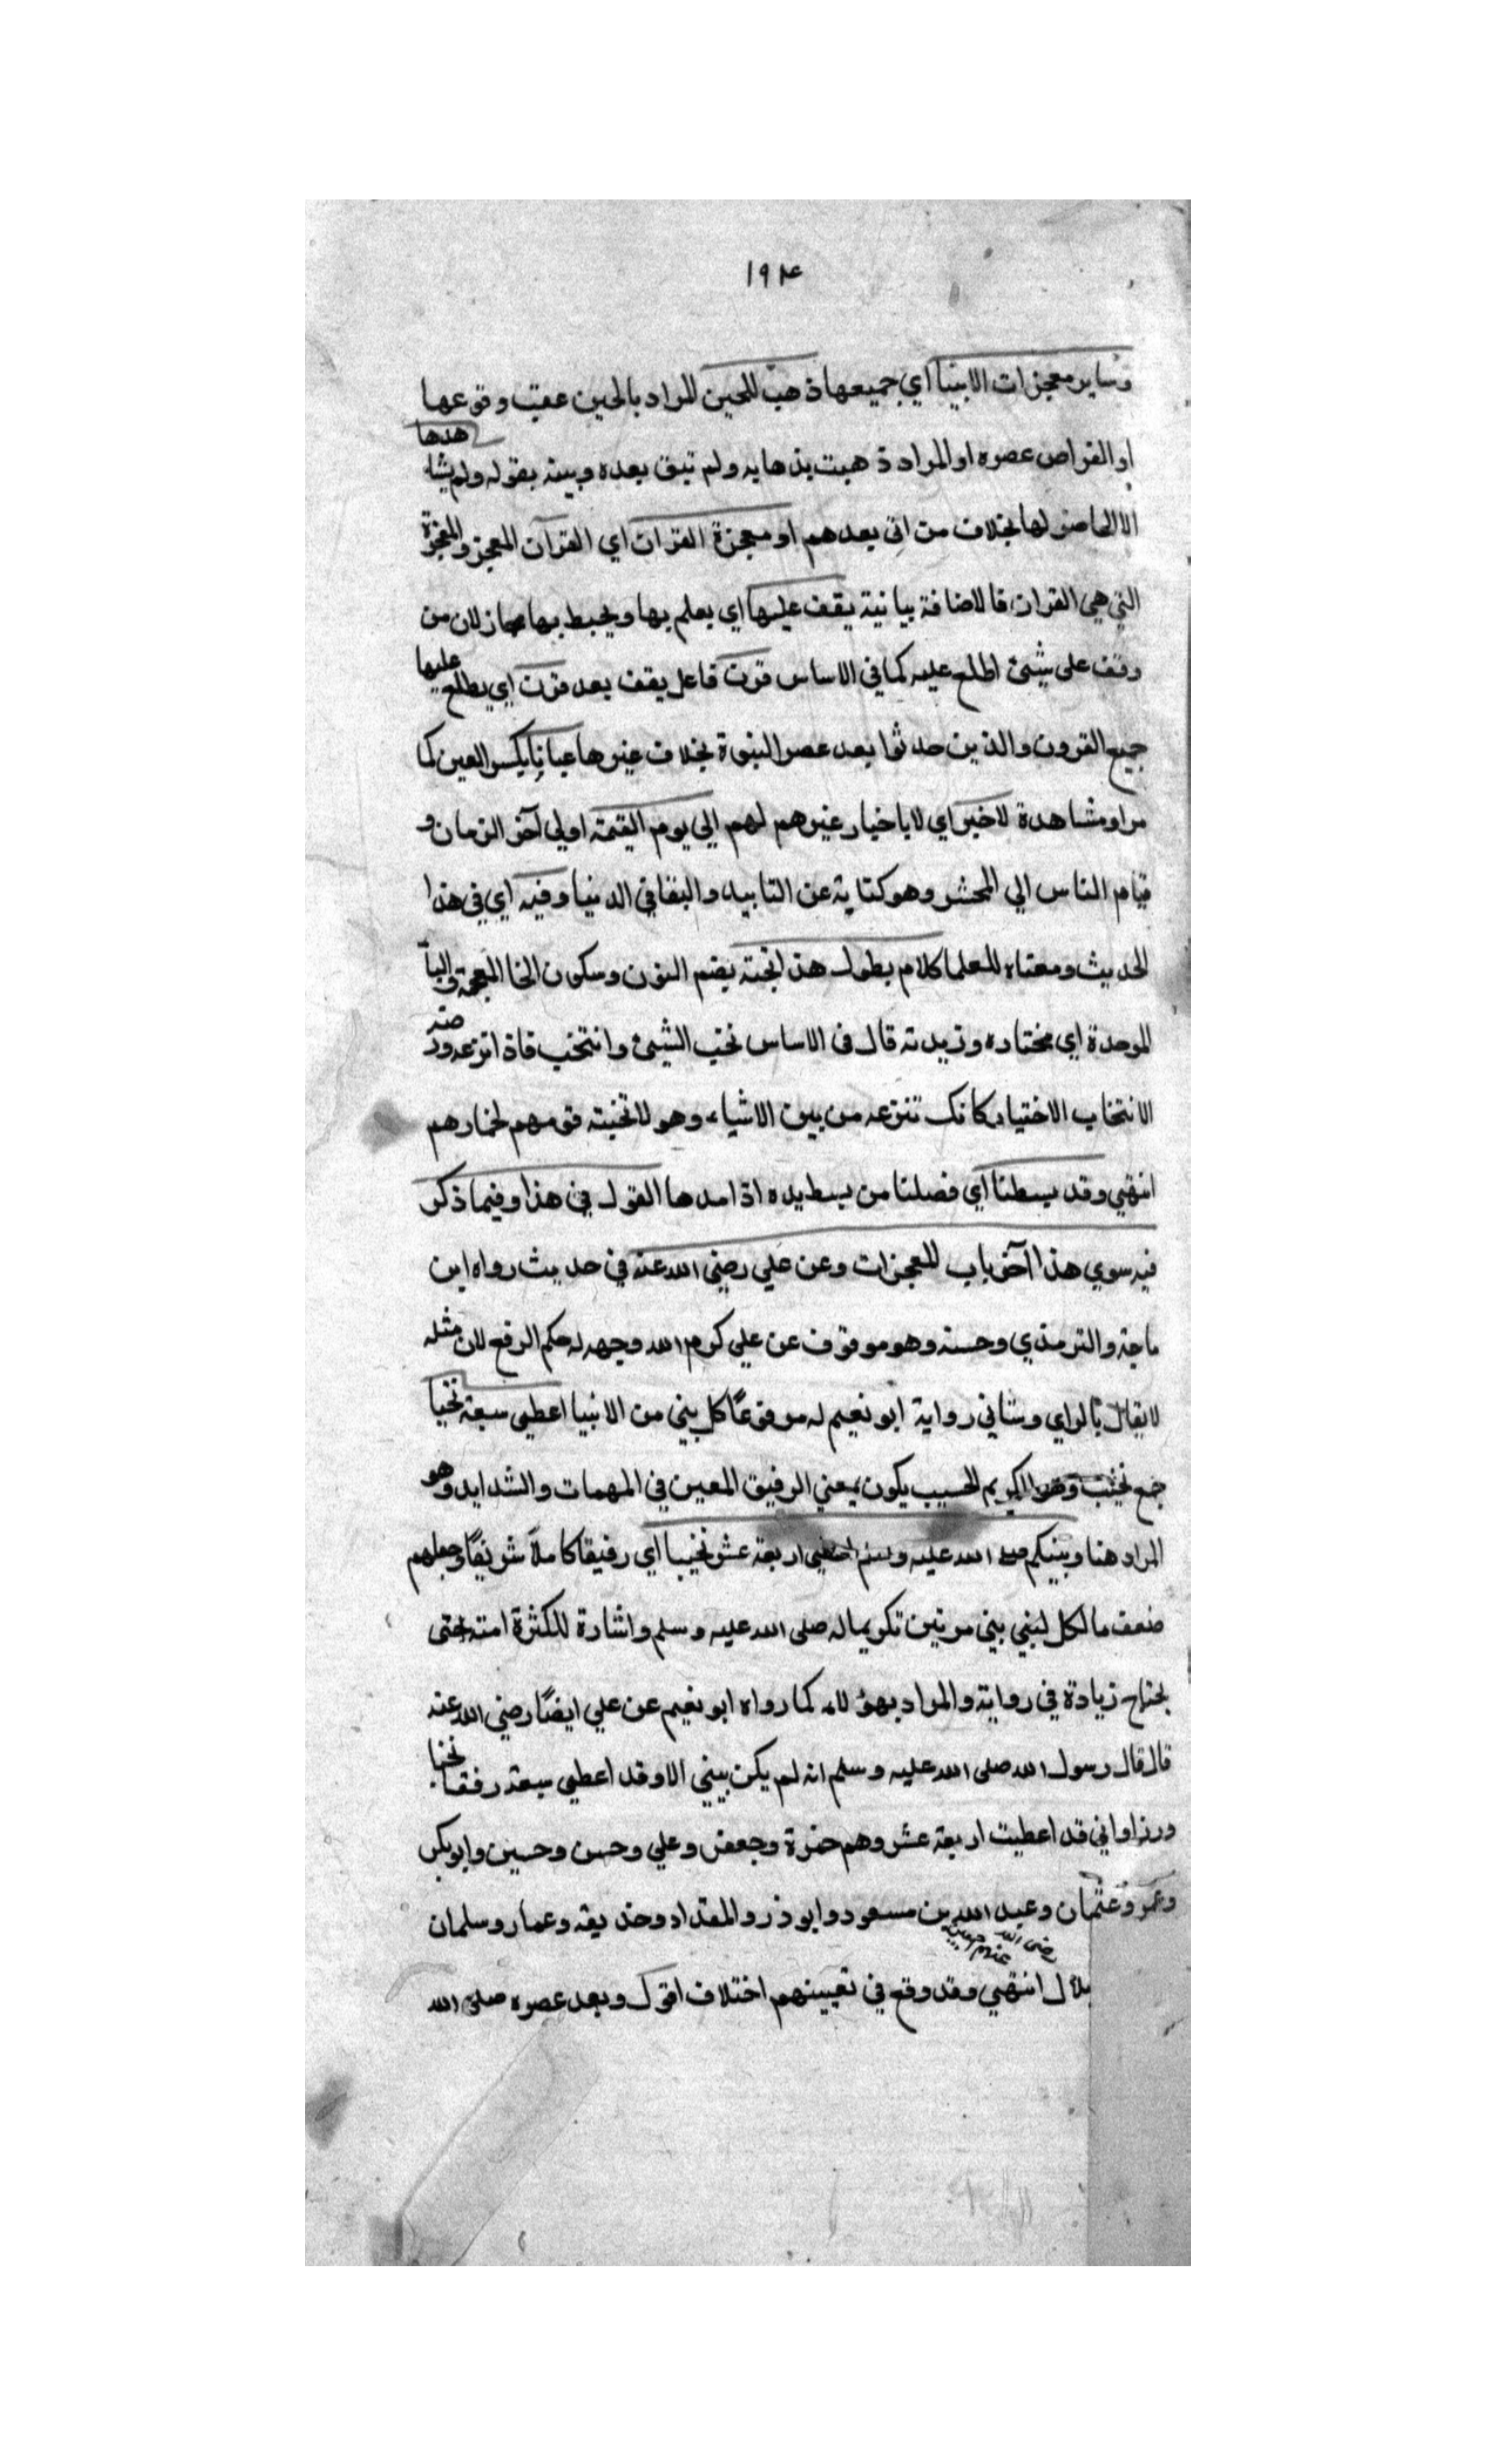 ١٩٤
وساير معجزات الانبيا اي جميعها ذهبت للحين المراد بالحين عقيب وقوعها
او انقراض عصره او المراد ذهبت بذهابه ولم تبق بعده وبينه بقوله ولم يشاهدها
الا الحاضر لها بخلاف من اتى بعدهم او معجزة القران اي القرآن المعجز والمعجزة
التي هي القران فالاضافة بيانية يقف عليها اي يعلم بها ويحيط بها مجاز لان من
وقف على شيئ اطلع عليه كما في الاساس قرن فاعل يقف بعد قرن اي يطلع عليها
جميع القرون والذين حدثوا بعد عصر النبوة بخلاف غيرها عيانا بكسر العين كما
مر او مشاهدة لاخبر اي لا باخبار غيرهم لهم الي يوم القيمة او لي آخر الزمان و
قيام الناس الي المحشر وهو كناية عن التابيد والبقا في الدنيا وفيه اي في هذا
الحديث ومعناه للعلما كلام يطول هذا نخبته بضم النون وسكون الخا المعجمة والبا
الموحدة اي مختاره وزبدته قال في الاساس نخب الشيئ وانتخب فاذا انزعه ومنه
الانتخاب الاختيار كانك تنزعه من بين الاشياء وهولا نخبته قومهم لخيارهم
انتهي وقد بسطنا اي فصلنا من بسط يده اذا مدها القول في هذا وفيما ذكر
فيه سوي هذا آخر باب المعجزات وعن علي رضي الله عنه في حديث رواه ابن
ماجة والترمذي وحسنه وهو موقوف عن علي كرم الله وجهه له حكم الرفع لان مثله
لا يقال بالراي وستاني رواية ابو نعيم له مرفوعًا كل نبي من الانبيا اعطي سبعة نخبا
جمع نخيب وهو الكريم الحسيب يكون بمعني الرفيق المعين في المهمات والشدايد وهو
المراد هنا ونبيكم صلى الله عليه وسلم اعطي اربعة عشر نخيبا اي رفيقا كاملا شريفًا وجعلهم
ضعف ما لكل لنبي نبي مرتين تكريما له صلى الله عليه وسلم واشارة للكثرة امته حتى
يحتاج زيادة في رواية والمراد بهؤلاء كما رواه ابو نعيم عن علي ايضًا رضي الله عنه
قال قال رسول الله صلى الله عليه وسلم انه لم يكن نبيني الا وقد اعطي سبعة رفقا نخبا
وزراواني قد اعطيت اربعة عشر وهم حمزة وجعفر وعلي وحسن وحسين وابو بكر
وعمر وعثمان وعبد الله بن مسعود وابو ذر والمقداد وحذيفه وعمار وسلمان
رضى الله عنهم اجمعين
بلال انتهي وقد وقع في تعيينهم اختلاف اقول وبعد عصره صلى الله